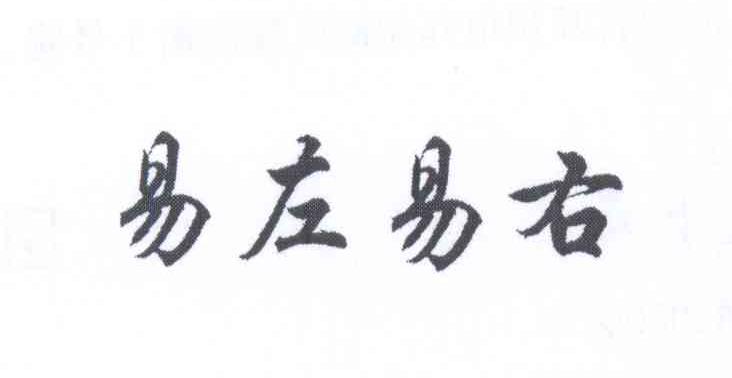 易左易右